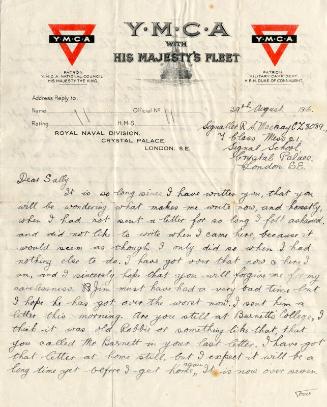 Y·M·C·A
WITH
HIS MAJESTY'S FLEET
Y·M·C·A
PATRON
Y.M.C.A. NATIONAL COUNCIL
H.M. THE KING.
Y·M·C·A
PATRON
MILITARY CAMP DEPT.
H.R.H. DUKE OF CONNAUGHT.
Address Reply to
Name Official No
Rating H.M.S.
ROYAL NAVAL DIVISION,
CRYSTAL PALACE,
LONDON, S.E.
29th August 191
Signaller R. A. Mackay C.Z. 8089
Class Mess
Signal School,
Crystal Palace,
London S.E.
Dear Sally
It is so long since I have written you, that you
will be wondering what makes me write now, and honestly
when I had not sent a letter for so long I felt ashamed
and did not like to write when I came here because it
would seem as though I only did so when I had
nothing else to do. I have got over that now so here I
am, and I sincerely hope that you will forgive me for my
carelessness. Jim must have had a very bad time but
I hope he has got over the worst now. I sent him a
letter this morning. Are you still at Burnett's College, I
think it was old Robbie or something like that, that
you called Mr Barnett in your last letter. I have got
that letter at home still, but I expect it will be a
long time yet before I get home now. It is now over seven